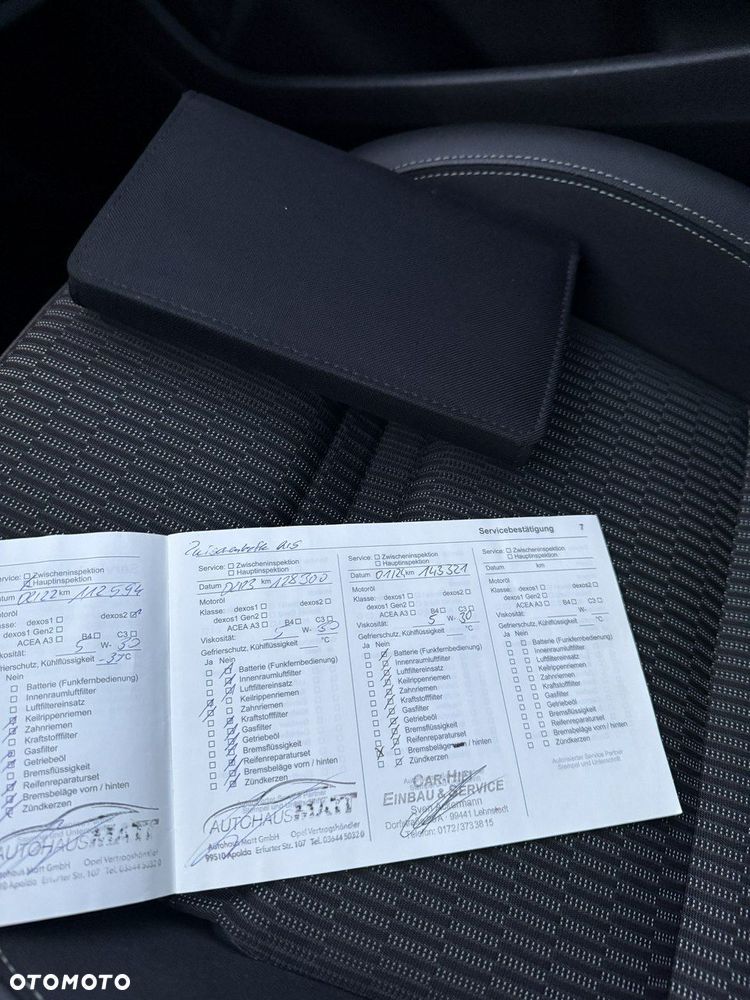 Servicebestätigung 7
Service: ☐ Zwischeninspektion
☒ Hauptinspektion
km 112.994
Motoröl
Klasse: dexos1 ☐ dexos2 ☑
dexos1 Gen2 ☐
ACEA A3 ☐ B4 ☐ C3 ☐
Viskosität: 5 W- 30
Gefrierschutz, Kühlflüssigkeit -37 °C
Nein
Batterie (Funkfernbedienung)
Innenraumluftfilter
Luftfiltereinsatz
Keilrippenriemen
Zahnriemen
Kraftstofffilter
Gasfilter
Getriebeöl
Bremsflüssigkeit
Reifenreparaturset
Bremsbeläge vorn / hinten
Zündkerzen
AUTOHAUS MATT
Autohaus Matt GmbH Opel Vertragshändler
Apolda Erfurter Str. 107 Tel. 03644 50320
Service: ☐ Zwischeninspektion
☐ Hauptinspektion
Datum km 128300
Motoröl
Klasse: dexos1 ☐ dexos2 ☐
dexos1 Gen2 ☐
ACEA A3 ☐ B4 ☐ C3 ☐
Viskosität: 5 W- 30
Gefrierschutz, Kühlflüssigkeit °C
Ja Nein
Batterie (Funkfernbedienung)
Innenraumluftfilter
Luftfiltereinsatz
Keilrippenriemen
Zahnriemen
Kraftstofffilter
Gasfilter
Getriebeöl
Bremsflüssigkeit
Reifenreparaturset
Bremsbeläge vorn / hinten
Zündkerzen
AUTOHAUS MATT
Autohaus Matt GmbH Opel Vertragshändler
99510 Apolda Erfurter Str. 107 Tel. 03644 50320
Service: ☐ Zwischeninspektion
☐ Hauptinspektion
Datum 01/24 km 143321
Motoröl
Klasse: dexos1 ☐ dexos2 ☐
dexos1 Gen2 ☐
ACEA A3 ☐ B4 ☐ C3 ☐
Viskosität: 5 W- 30
Gefrierschutz, Kühlflüssigkeit °C
Ja Nein
Batterie (Funkfernbedienung)
Innenraumluftfilter
Luftfiltereinsatz
Keilrippenriemen
Zahnriemen
Kraftstofffilter
Gasfilter
Getriebeöl
Bremsflüssigkeit
Reifenreparaturset
Bremsbeläge vorn / hinten
Zündkerzen
CAR-HIFI
EINBAU & SERVICE
Sven
99441 Lehnstedt
Telefon: 0172/3733815
Service: ☐ Zwischeninspektion
☐ Hauptinspektion
Datum km
Motoröl
Klasse: dexos1 ☐ dexos2 ☐
dexos1 Gen2 ☐
ACEA A3 ☐ B4 ☐ C3 ☐
Viskosität: W-
Gefrierschutz, Kühlflüssigkeit °C
Ja Nein
Batterie (Funkfernbedienung)
Innenraumluftfilter
Luftfiltereinsatz
Keilrippenriemen
Zahnriemen
Kraftstofffilter
Gasfilter
Getriebeöl
Bremsflüssigkeit
Reifenreparaturset
Bremsbeläge vorn / hinten
Zündkerzen
Autorisierter Service Partner
Stempel und Unterschrift
OTOMOTO